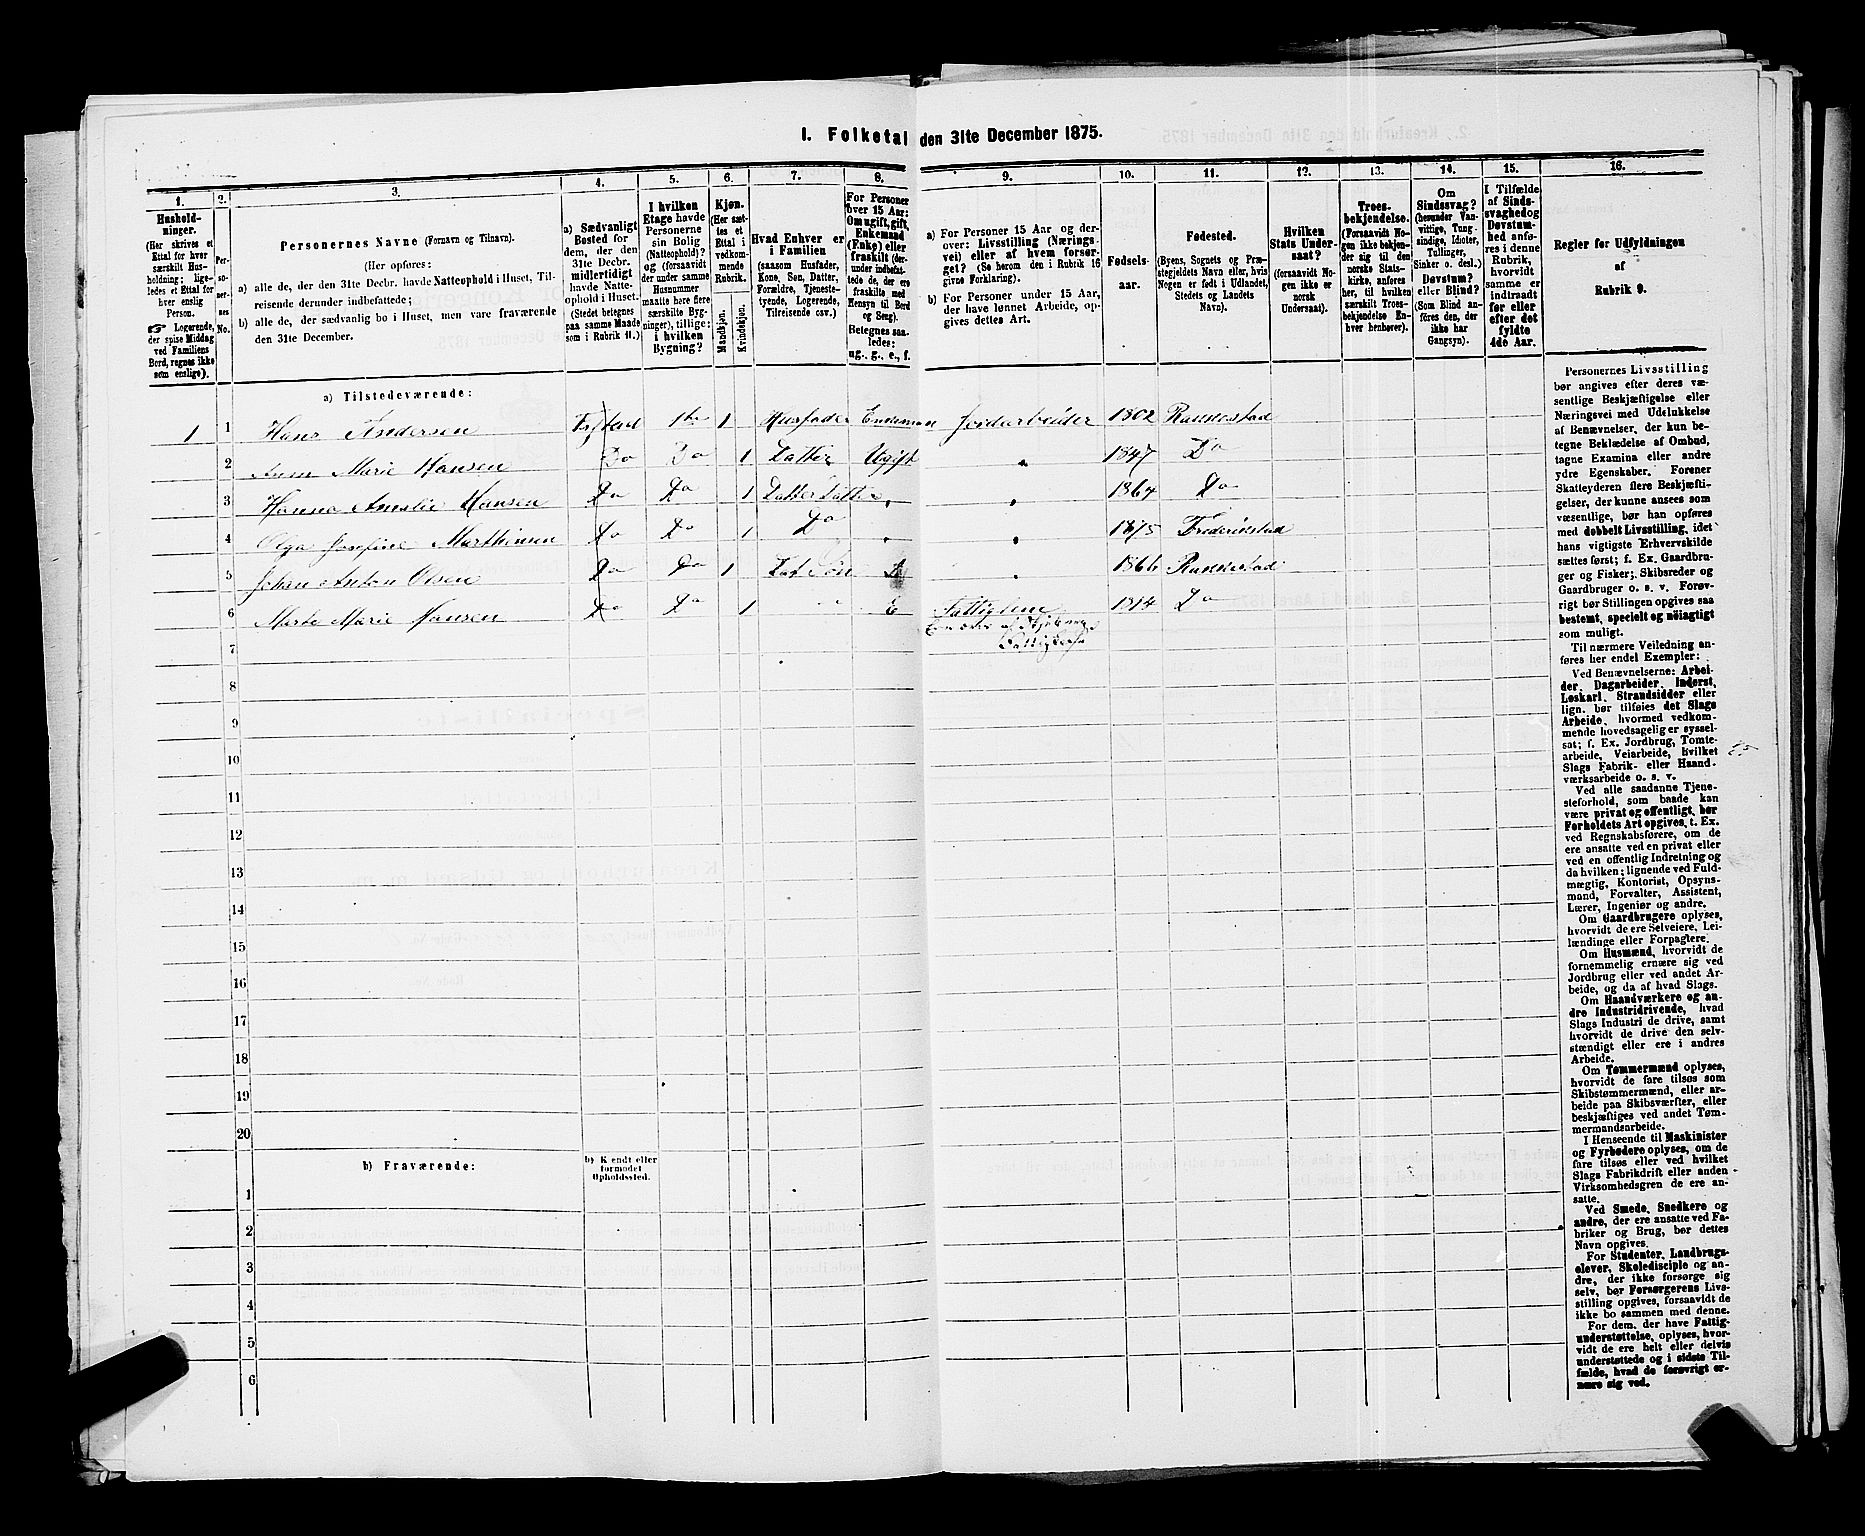 I. Folketal den 31te December 1875.
1. 2. 3. 4. 5. 6. 7. 8. 9. 10. 11. 12. 13. 14. 15. 16.
Hushold-
ninger.
(Her skrives et
Ettal for hver
særskilt Hus-
holdning; lige-
ledes et Ettal for
hver enslig
Person.
☞ Logerende,
der spise Middag
ved Familiens
Bord, regnes ikke
som enslige).
Per-
so-
ner-
nes
No.
Personernes Navne (Fornavn og Tilnavn).
(Her opføres:
a) alle de, der den 31te Decbr. havde Natteophold i Huset, Til-
reisende derunder indbefattede;
b) alle de, der sædvanlig bo i Huset, men vare fraværende
den 31te December.
a) Sædvanligt
Bosted for
dem, der den
31te Decbr.
midlertidigt
havde Natte-
ophold i Huset.
(Stedet betegnes
paa samme Maade
som i Rubrik 11.)
I hvilken
Etage havde
Personerne
sin Bolig
(Natteophold)?
og (forsaavidt
der under samme
Husnummer
maatte høre flere
særskilte Byg-
ninger), tillige:
i hvilken
Bygning?
Kjøn.
(Her sæt-
tes et
Ettal i
vedkom-
mende
Rubrik.
Mandkjøn.
Kvindekjøn.
Hvad Enhver er
i Familien
(saasom Husfader,
Kone, Søn, Datter,
Forældre, Tjeneste-
tyende, Logerende,
Tilreisende osv.)
For Personer
over 15 Aar:
Om ugift, gift,
Enkemand
(Enke) eller
fraskilt (der-
under indbefat-
tede de, der ere
fraskilte med
Hensyn til Bord
og Seng).
Betegnes saa-
ledes:
ug., g., e., f.
a) For Personer 15 Aar og der-
over: Livsstilling (Nærings-
vei) eller af hvem forsør-
get? (Se herom den i Rubrik 16
givne Forklaring).
b) For Personer under 15 Aar,
der have lønnet Arbeide, op-
gives dettes Art.
Fødsels-
aar.
Fødested.
(Byens, Sognets og Præ-
stegjeldets Navn eller, hvis
Nogen er født i Udlandet,
Stedets og Landets
Navn).
Hvilken
Stats Under-
saat?
(forsaavidt No-
gen ikke er
norsk
Undersaat).
Troes-
bekjendelse.
(Forsaavidt No-
gen ikke bekjen-
der sig til den
norske Stats-
kirke, anføres
her, til hvilken
særskilt Troes-
bekjendelse En-
hver henhører).
Om
Sindssvag?
(herunder Van-
vittige, Tung-
sindige, Idioter,
Tullinger,
Sinker o. desl.)
Døvstum?
eller Blind?
(Som Blind an-
føres den, der
ikke har
Gangsyn).
I Tilfælde
af Sinds-
svaghed og
Døvstum-
hed anfø-
res i denne
Rubrik,
hvorvidt
samme er
indtraadt
før eller
efter det
fyldte
4de Aar.
Regler for Udfyldningen
af
Rubrik 9.
a) Tilstedeværende:
1 1 Hans Andersen 1te 1 Husfader Enkeman Jordarbeider 1802 Raknestad
2 Anne Marie Hansen Do Do 1 Datter Ugift „ 1847 Do
3 Hanna Amalie Hansen Do Do 1 Datter Datter „ „ 1864 Do
4 Olga Josefine Marthinsen Do Do 1 Do „ „ 1875 Frederikstad
5 Johan Anton Olsen Do Do 1 Dat Søn „ 1866 Raknestad
6 Marte Marie Hansen Do Do 1 „ E Fattiglem 1814 Do
7
8
9
10
11
12
13
14
15
16
17
18
19
20
b) Fraværende:
b) Kjendt eller
formodet
Opholdssted.
1
2
3
4
5
6
Personernes Livsstilling
bør angives efter deres væ-
sentlige Beskjæftigelse eller
Næringsvei med Udelukkelse
af Benævnelser, der kun be-
tegne Beklædelse af Ombud,
tagne Examina eller andre
ydre Egenskaber. Forener
Skatteyderen flere Beskjæfti-
gelser, der kunne ansees som
væsentlige, bør han opføres
med dobbelt Livsstilling, idet
hans vigtigste Erhvervskilde
sættes først; f. Ex. Gaardbru-
ger og Fisker; Skibsreder og
Gaardbruger o. s. v. Forøv-
rigt bør Stillingen opgives saa
bestemt, specielt og nøiagtigt
som muligt.
Til nærmere Veiledning an-
føres her endel Exempler:
Ved Benævnelserne: Arbei-
der, Dagarbeider, Inderst,
Løskarl, Strandsidder eller
lign. bør tilføies det Slags
Arbeide, hvormed vedkom-
mende hovedsagelig er syssel-
sat; f. Ex. Jordbrug, Tomte-
arbeide, Veiarbeide, hvilket
Slags Fabrik- eller Haand-
værksarbeide o. s. v.
Ved alle saadanne Tjene-
steforhold, som baade kan
være privat og offentligt, bør
Forholdets Art opgives, t. Ex.
ved Regnskabsførere, om de
ere ansatte ved en privat eller
ved en offentlig Indretning og
da hvilken; lignende ved Fuld-
mægtig, Kontorist, Opsyns-
mand, Forvalter, Assistent,
Lærer, Ingeniør og andre.
Om Gaardbrugere oplyses,
hvorvidt de ere Selveiere, Lei-
lændinge eller Forpagtere.
Om Husmænd, hvorvidt de
fornemmelig ernære sig ved
Jordbrug eller ved andet Ar-
beide, og da af hvad Slags.
Om Haandværkere og an-
dre Industridrivende, hvad
Slags Industri de drive, samt
hvorvidt de drive den selv-
stændigt eller ere i andres
Arbeide.
Om Tømmermænd oplyses,
hvorvidt de fare tilsøs som
Skibstømmermænd, eller ar-
beide paa Skibsværfter, eller
beskjæftiges ved andet Tøm-
mermandsarbeide.
I Henseende til Maskinister
og Fyrbødere oplyses, om de
fare tilsøs eller ved hvilket
Slags Fabrikdrift eller anden
Virksomhedsgren de ere an-
satte.
Ved Smede, Snedkere og
andre, der ere ansatte ved Fa-
briker og Brug, bør dettes
Navn opgives.
For Studenter, Landbrugs-
elever, Skoledisciple og an-
dre, der ikke forsørge sig
selv, bør Forsørgerens Livs-
stilling opgives, forsaavidt de
ikke bo sammen med denne.
For dem, der have Fattig-
understøttelse, oplyses, hvor-
vidt de ere helt eller delvis
understøttede og i sidste Til-
fælde, hvad de forøvrigt er-
nære sig ved.